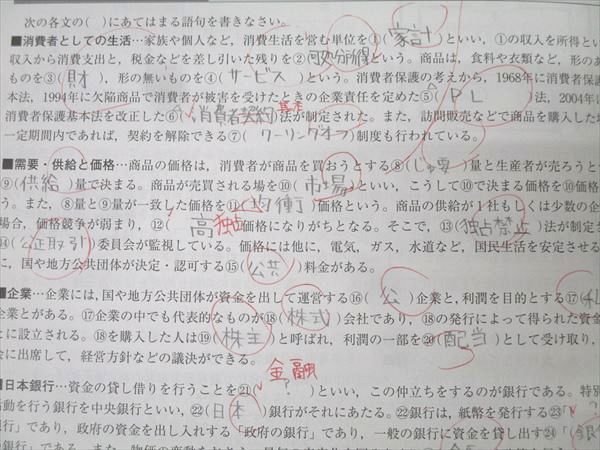 次の各文の( )にあてはまる語句を書きなさい。
■消費者としての生活…家族や個人など，消費生活を営む単位を①(家計)といい，①の収入を所得とい
収入から消費支出と，税金などを差し引いた残りを②(可処分所得)という。商品は，食料や衣類など，形のあ
ものを③(財)，形の無いものを④(サービス)という。消費者保護の考えから，1968年に消費者保護
本法，1994年に欠陥商品で消費者が被害を受けたときの企業責任を定めた⑤(PL)法，2004年に
消費者保護基本法を改正した⑥(消費者契約)法が制定された。また，訪問販売などで商品を購入した場
一定期間内であれば，契約を解除できる⑦(クーリングオフ)制度も行われている。
■需要・供給と価格…商品の価格は，消費者が商品を買おうとする⑧(じゅ要)量と生産者が売ろうと
⑨(供給)量で決まる。商品が売買される場を⑩(市場)といい，こうして⑩で決まる価格を⑩価格
う。また，⑧量と⑨量が一致した価格を⑪(均衡)価格という。商品の供給が1社もしくは少数の企
場合，価格競争が弱まり，⑫(高 独占 価格になりがちとなる。そこで，⑬(独占禁止)法が制定さ
⑭(公正取引)委員会が監視している。価格には他に，電気，ガス，水道など，国民生活を安定させる
に，国や地方公共団体が決定・認可する⑮(公共)料金がある。
■企業…企業には，国や地方公共団体が資金を出して運営する⑯(公)企業と，利潤を目的とする⑰(私
企業とがある。⑰企業の中でも代表的なものが⑱(株式)会社であり，⑱の発行によって得られた資金
とに設立される。⑱を購入した人は⑲(株主)と呼ばれ，利潤の一部を⑳(配当)として受け取り，
会に出席して，経営方針などの議決ができる。
金融
■日本銀行…資金の貸し借りを行うことを㉑( ? )といい，この仲立ちをするのが銀行である。特別
活動を行う銀行を中央銀行といい，㉒(日本)銀行がそれにあたる。㉒銀行は，紙幣を発行する㉓(
銀行」であり，政府の資金を出し入れする「政府の銀行」であり，一般の銀行に資金を貸し出す㉔(「銀行